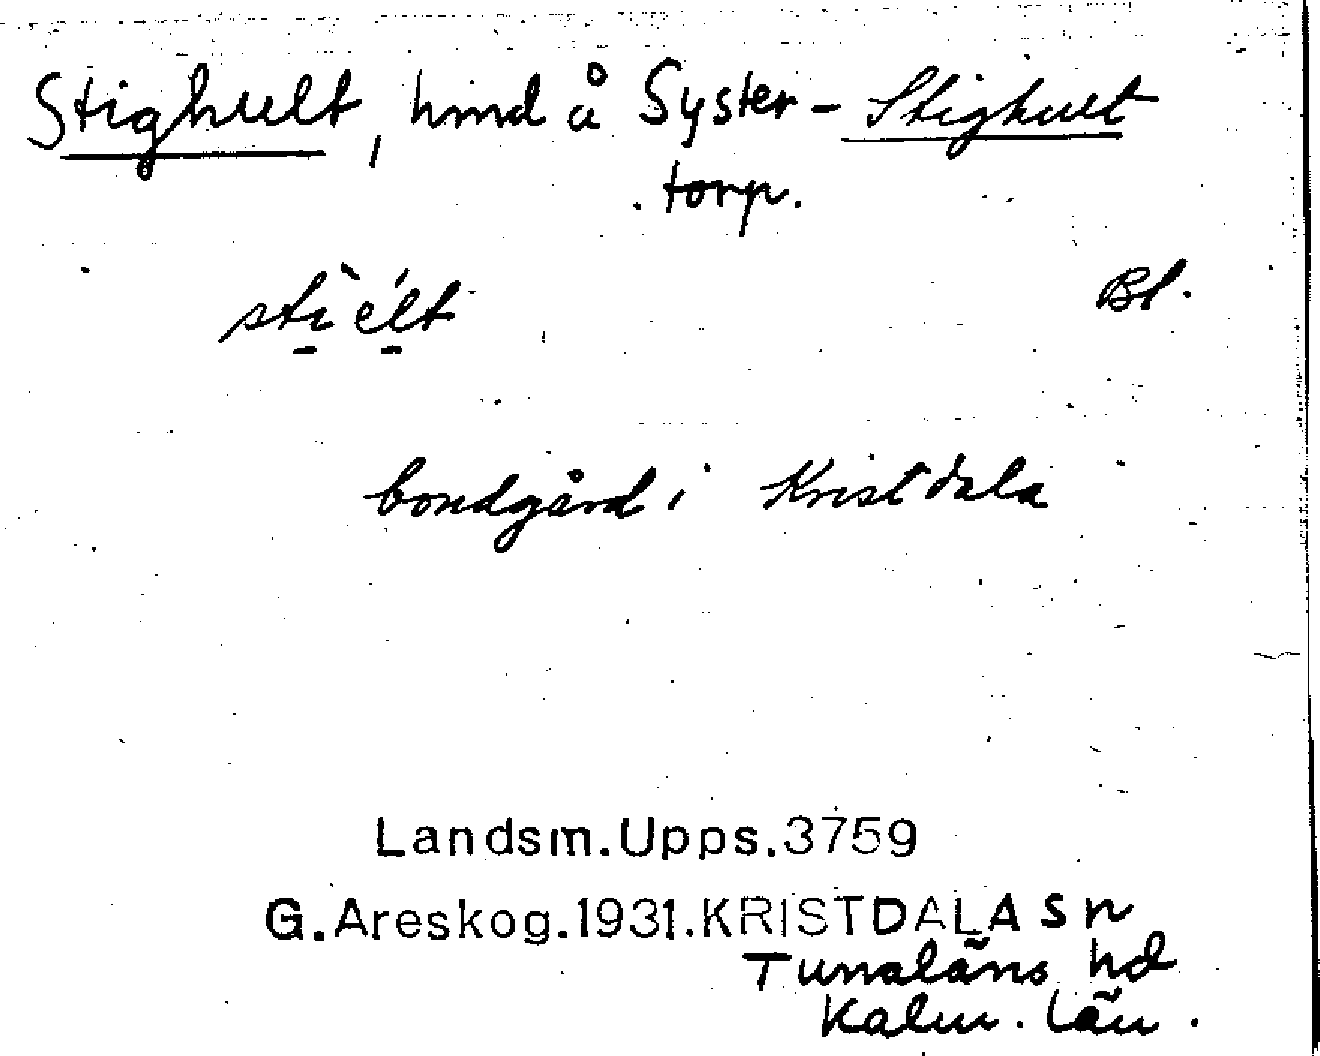 Stighult, hmd å Syster- Stighult
torp.
stìélt Bl.
bondgård i Kristdala
Landsm.Upps.3759
G.Areskog.1931.KRISTDALA Sn
Tunaläns hd
Kalm. län.